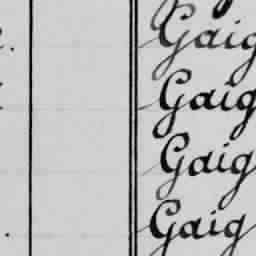 Gaig
Gaig
Gaig
Gaig